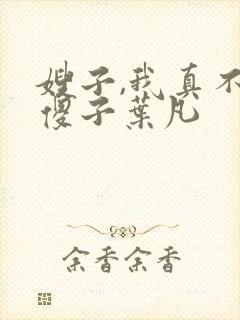 嫂子,我真不
傻子葉凡
余香余香